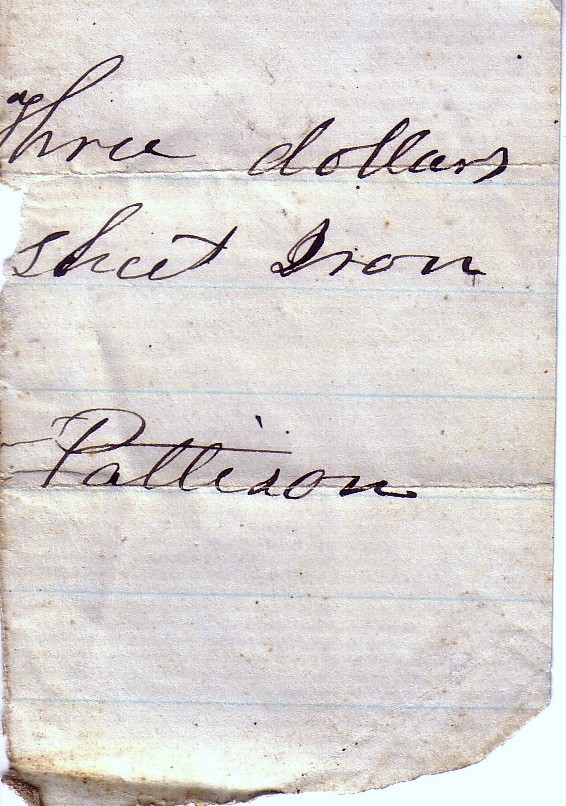 Three dollars
Sheet Iron
Pattison